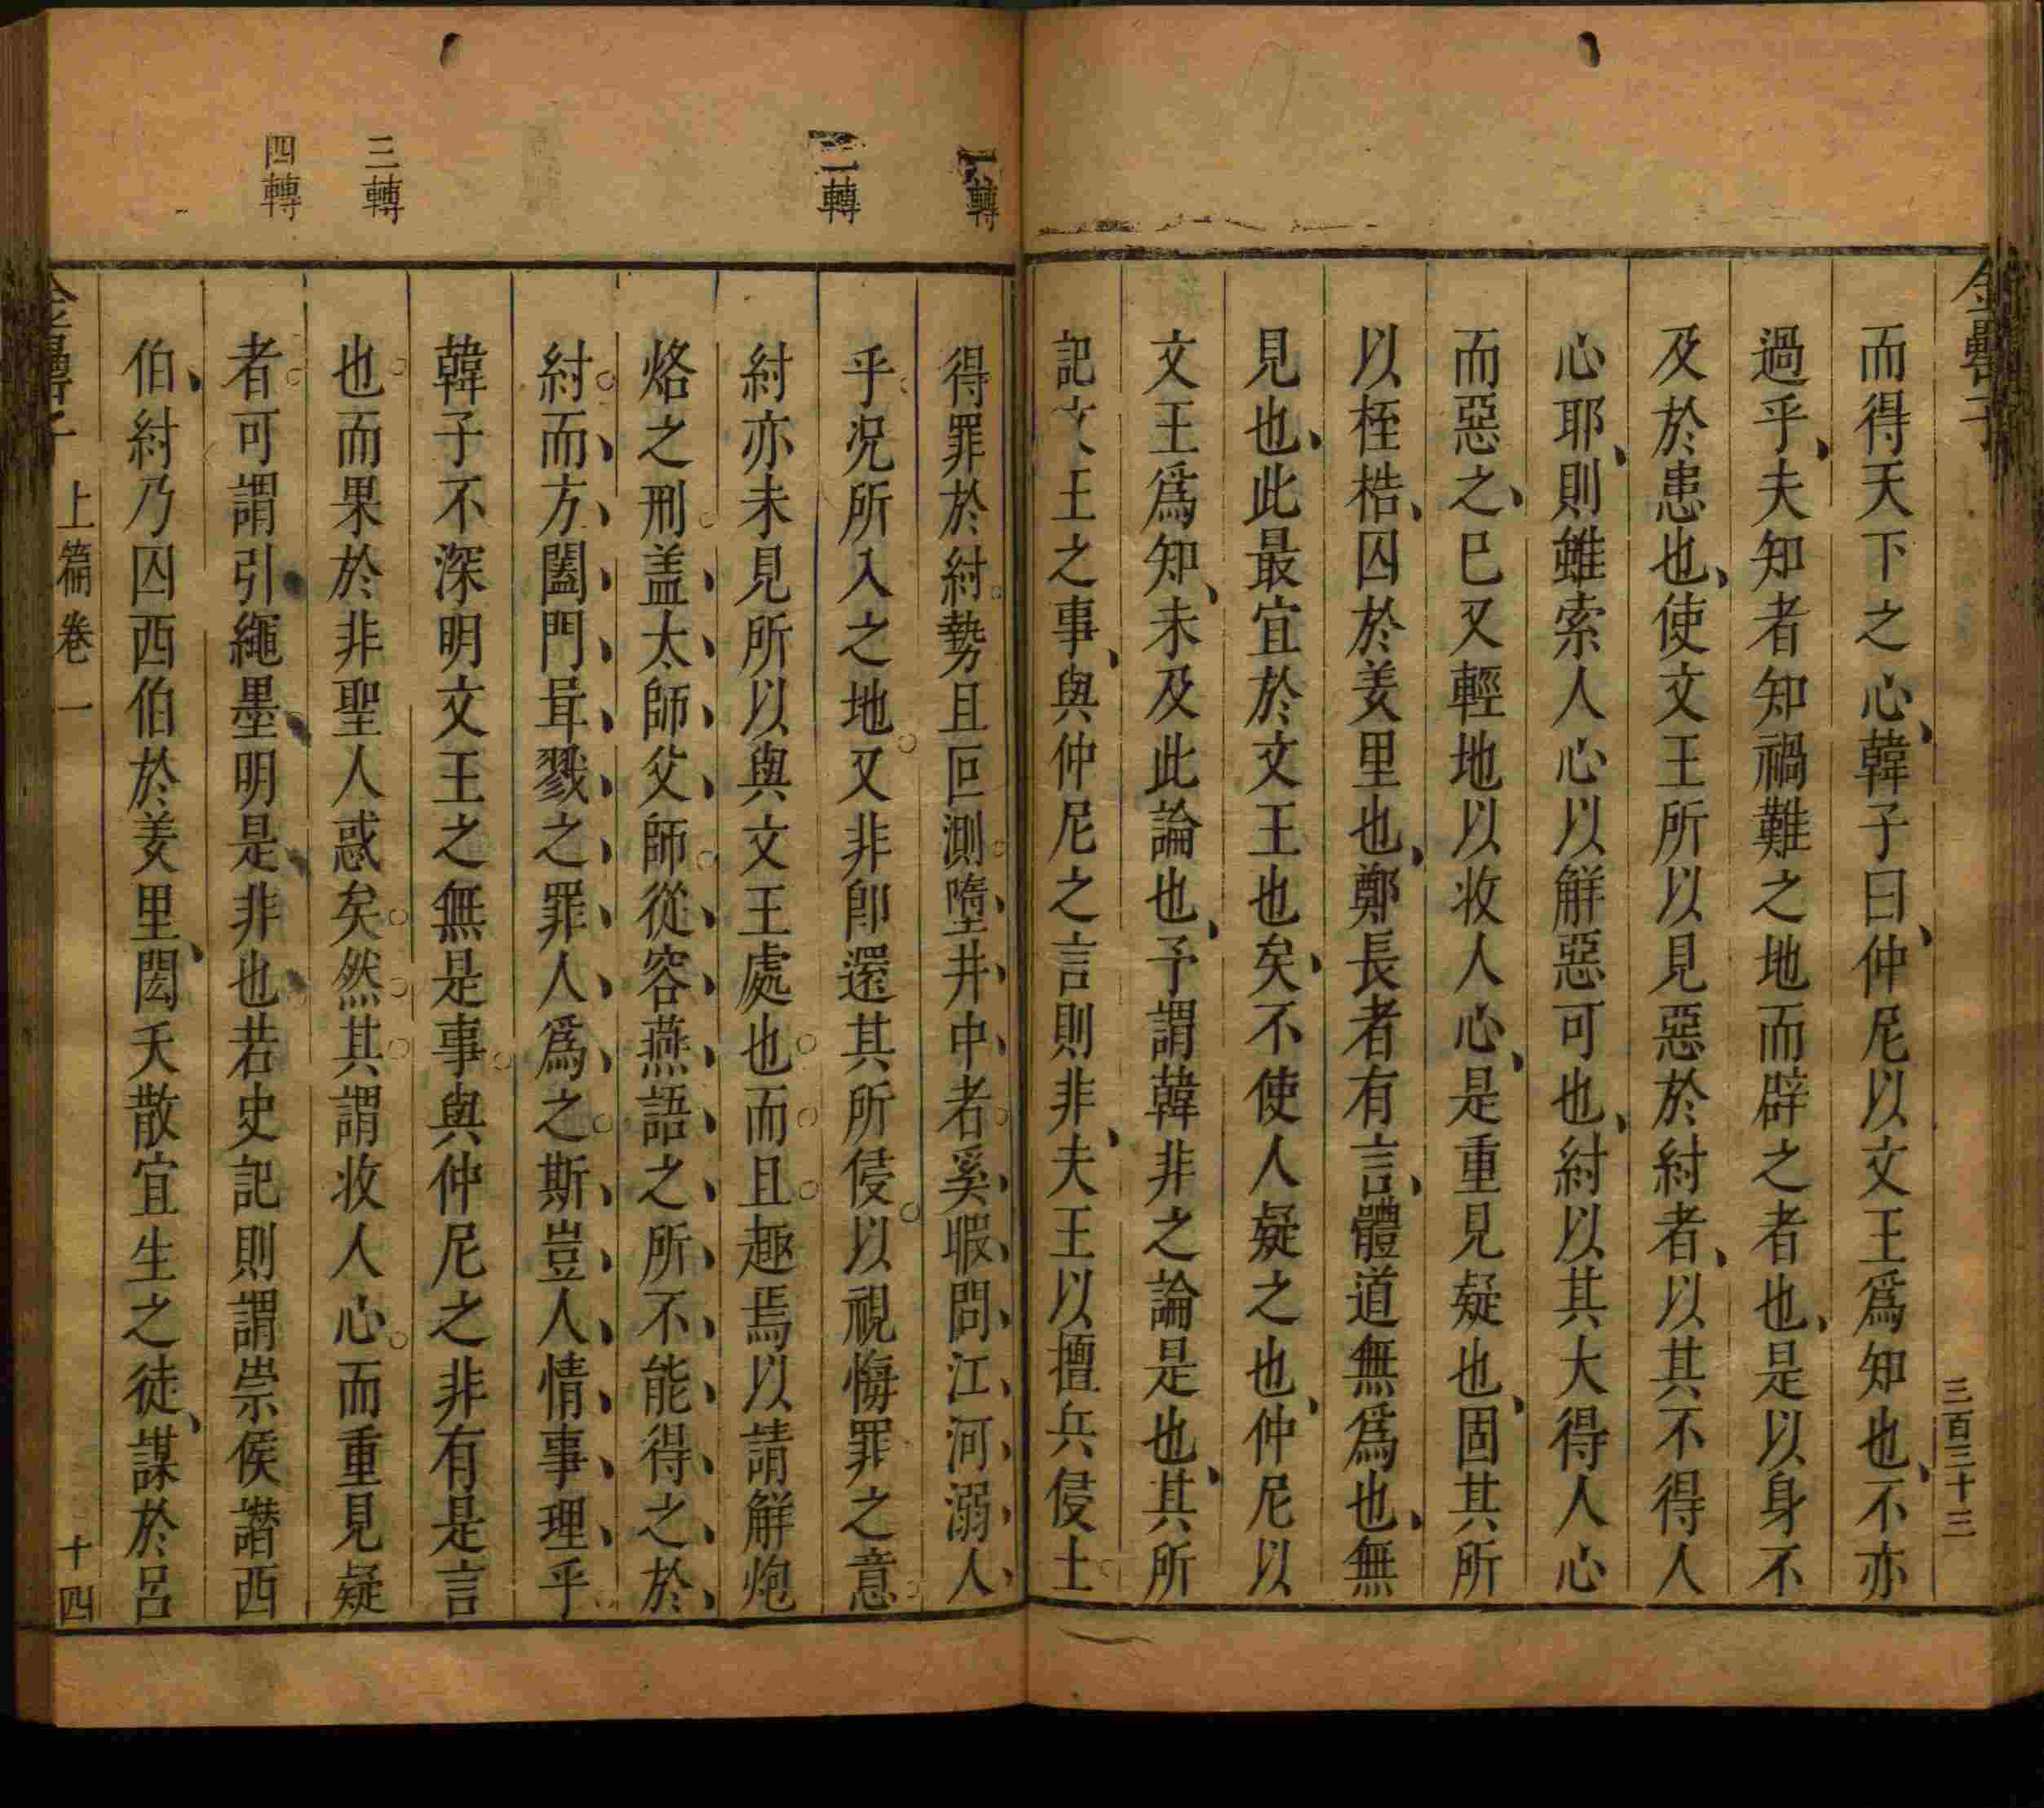 而得天下之心韓子曰仲尼以文王爲知也不亦
過乎夫知者知禍難之地而辟之者也是以身不
及於患也使文王所以見惡於紂者以其不得人
心耶則雖索人心以解惡可也紂以其大得人心
而惡之巳又輕地以收人心是重見疑也固其所
以桎梏囚於羑里也鄭長者有言體道無爲也無
見也此最宜於文王也矣不使人疑之也仲尼以
文王爲知未及此論也予謂韓非之論是也其所
記文王之事與仲尼之言則非夫王以擅兵侵土
一轉
得罪於紂勢且叵測墮井中者奚暇問江河溺人
二轉
乎况所入之地又非卽還其所侵以視悔罪之意
紂亦未見所以與文王處也而且趣焉以請解炮
烙之刑盖太師父師從容燕語之所不能得之於
紂而方闔門㝵戮之罪人爲之斯豈人情事理乎
韓子不深明文王之無是事與仲尼之非有是言
三轉
也而果於非聖人惑矣然其謂收人心而重見疑
四轉
者可謂引繩墨明是非也若史記則謂崇侯譖西
伯紂乃囚西伯於羑里閎夭散宜生之徒謀於呂
金罍子
上篇卷一
十四
金罍子
三百三十三